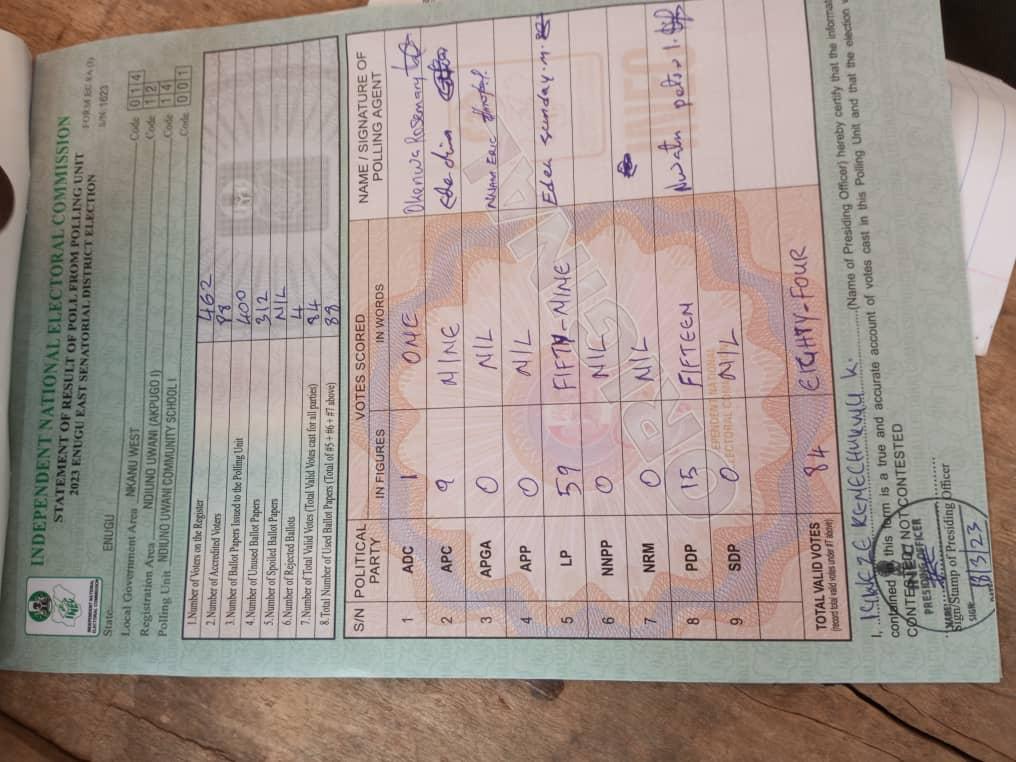 INDEPENDENT NATIONAL ELECTORAL COMMISSION
STATEMENT OF RESULT OF POLL FROM POLLING UNIT
2023 ENUGU EAST SENATORIAL DISTRICT ELECTION
FORM EC 8A (I)
S/N: 1623
State ENUGU Code 014
Local Government Area NKANU WEST Code 12
Registration Area NDIUNO UWANI (AKPUGO I) Code 14
Polling Unit NDIUNO UWANI COMMUNITY SCHOOL I Code 001
1.Number of Voters on the Register 462
2.Number of Accredited Voters 88
3.Number of Ballot Papers Issued to the Polling Unit 400
4.Number of Unused Ballot Papers 312
5.Number of Spoiled Ballot Papers NIL
6.Number of Rejected Ballots 4
7.Number of Total Valid Votes (Total Valid Votes cast for all parties) 84
8.Total Number of Used Ballot Papers (Total of #5 + #6 + #7 above) 88
S/N POLITICAL PARTY VOTES SCORED NAME / SIGNATURE OF POLLING AGENT
IN FIGURES IN WORDS
1 ADC 1 ONE Okenwa Rosemary
2 APC 9 NINE
3 APGA 0 NIL NNANA ERIC
4 APP 0 NIL
5 LP 59 FIFTY-NINE Edeh Sunday.M.
6 NNPP 0 NIL
7 NRM 0 NIL
8 PDP 15 FIFTEEN peter I.
9 SDP 0 NIL
TOTAL VALID VOTES 84 EIGHTY-FOUR
(record total valid votes under #7 above)
ORIGINAL
INEC
I, KENECHUKWU K. (Name of Presiding Officer) hereby certify that the
contained in this form is a true and accurate account of votes cast in this Polling Unit and that the election
CONTESTED NOT CONTESTED
PRESIDING OFFICER
Sign/Stamp of Presiding Officer
NAME:
SIGN:
18/3/23